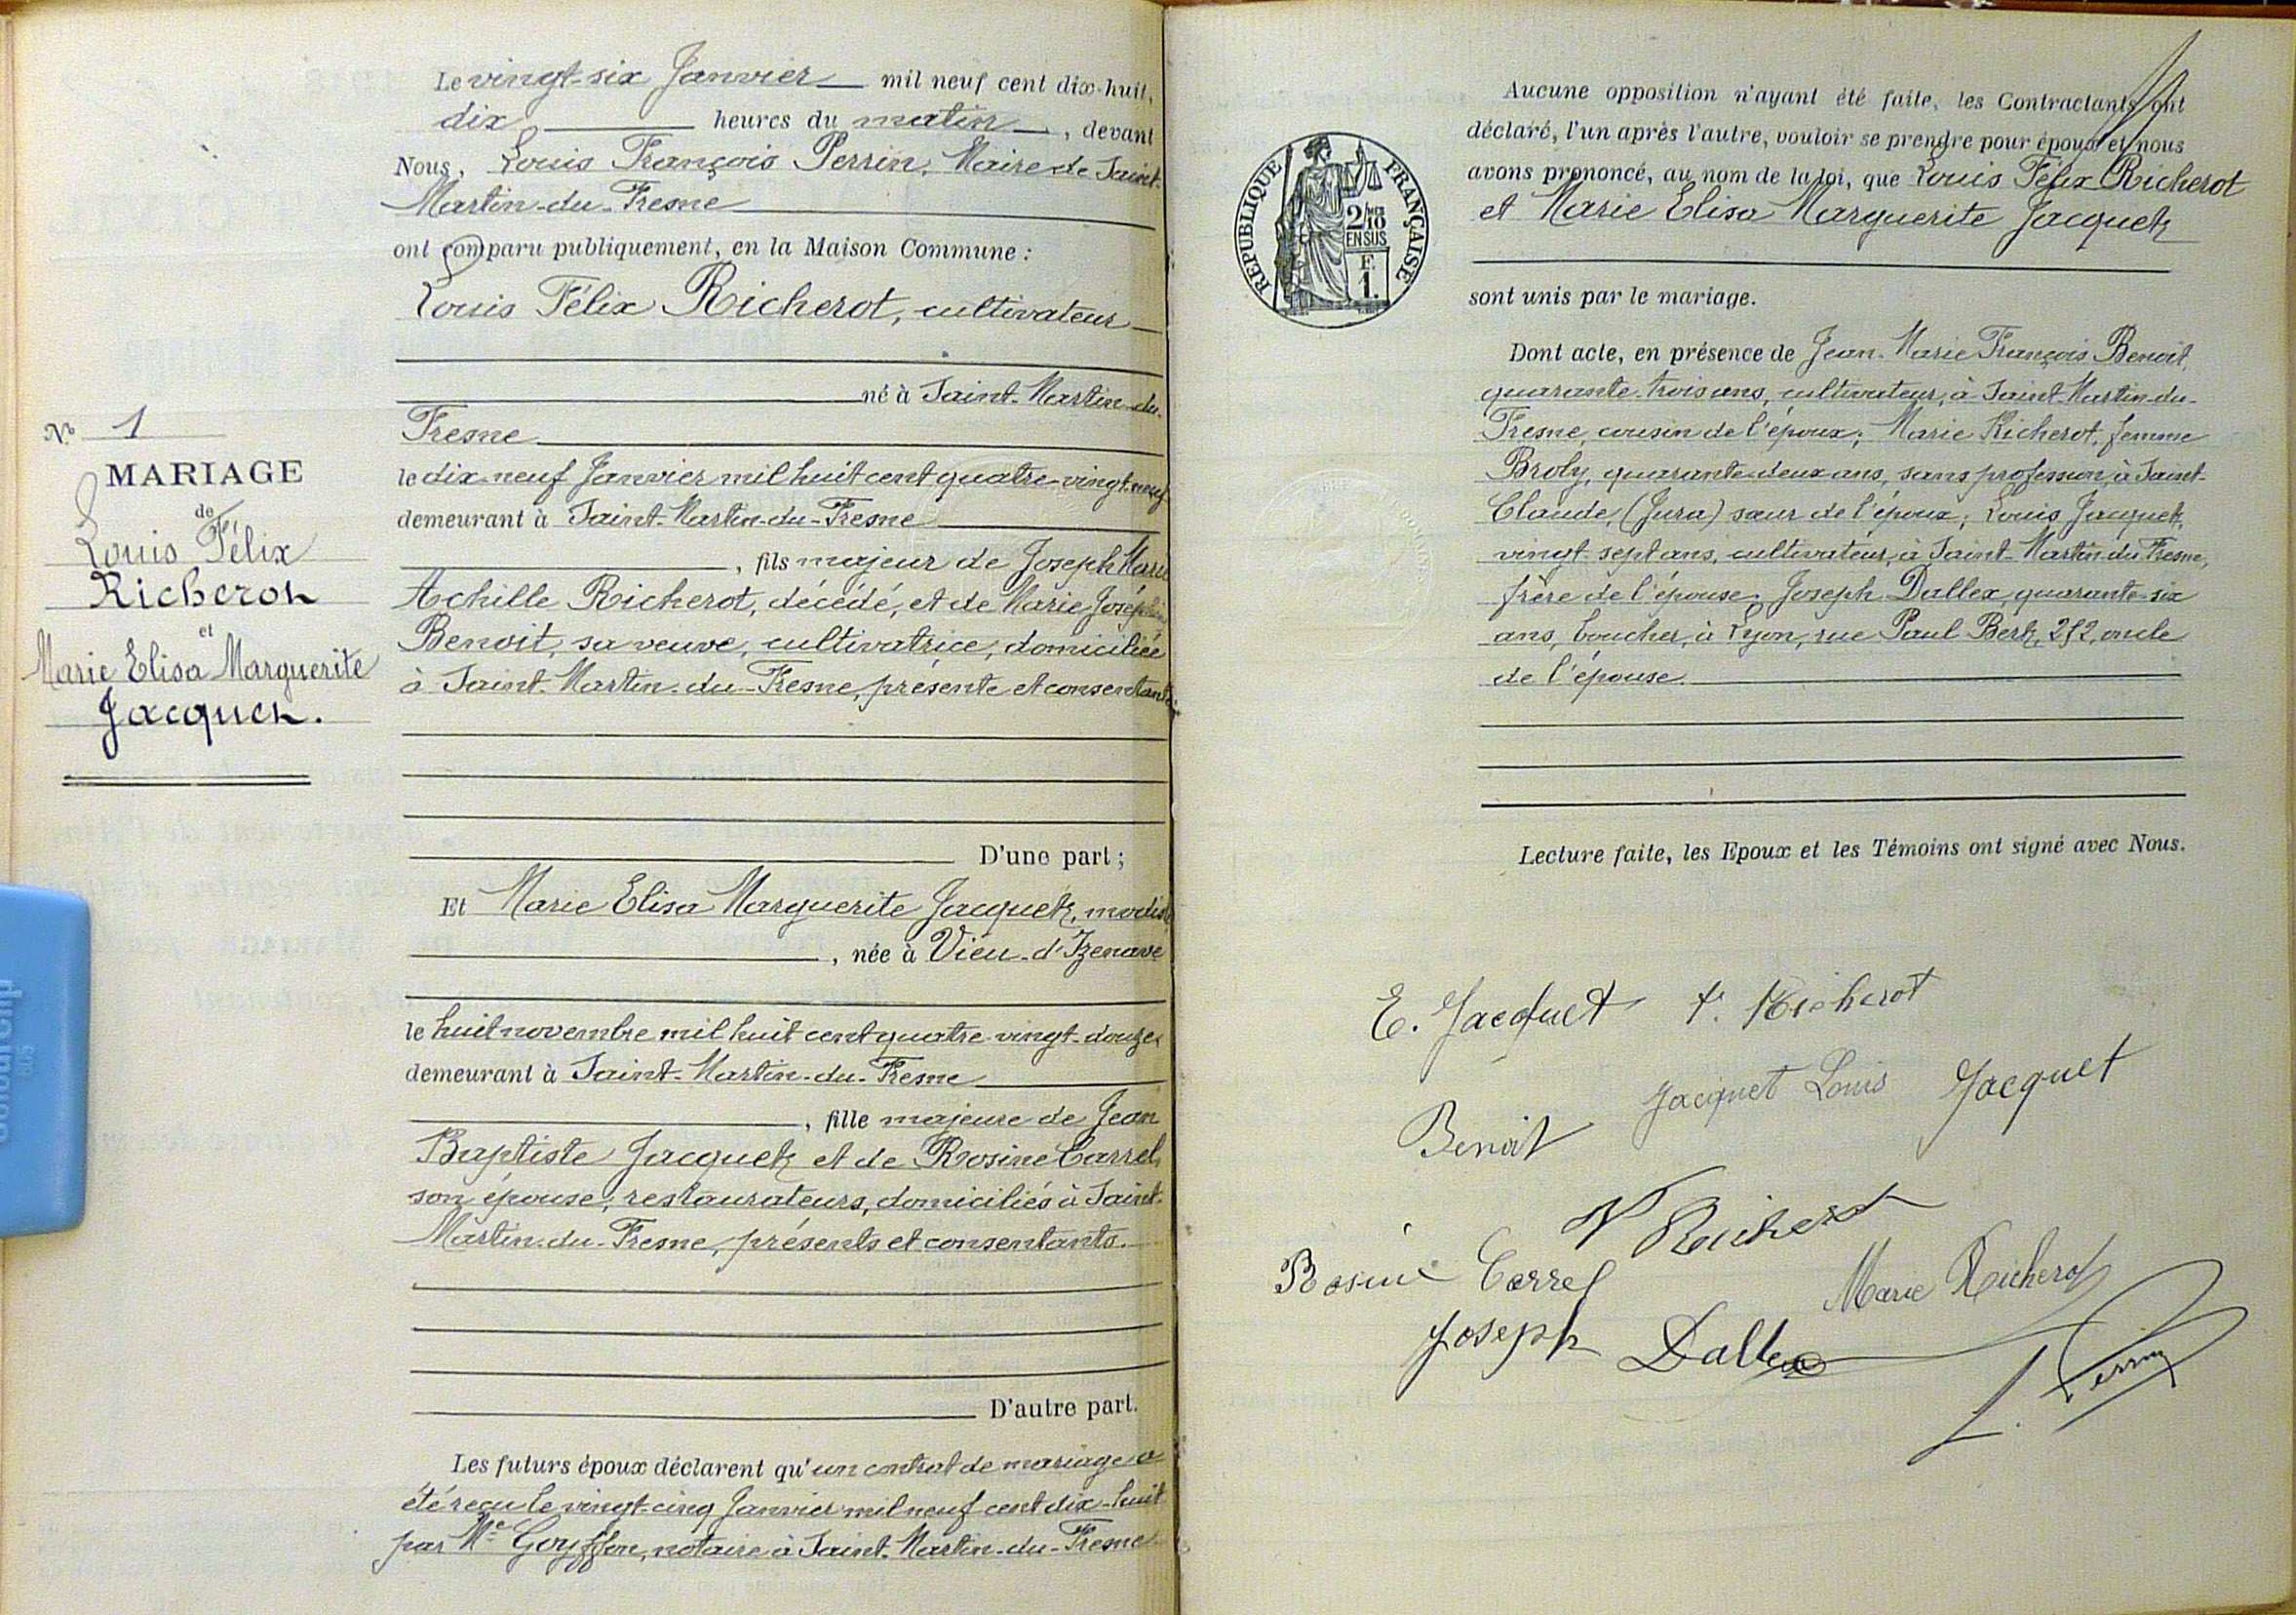 Le vingt-six Janvier mil neuf cent dix-huit,
dix heures du matin, devant
Nous, Louis François Perrin, Maire de Saint-
Martin-du-Fresne
ont comparu publiquement, en la Maison Commune :
Louis Félix Richerot, cultivateur
né à Saint-Martin-du-
Fresne
le dix-neuf Janvier mil huit cent quatre-vingt-neuf
demeurant à Saint-Martin-du-Fresne
, fils majeur de Joseph Marie
Achille Richerot, décédé, et de Marie Joséphine
Benoit, sa veuve, cultivatrice, domiciliée
à Saint-Martin-du-Fresne, présente et consentante
D'une part ;
Et Marie Elisa Marguerite Jacquet, modiste
, née à Vieu-d'Izenave
le huit novembre mil huit cent quatre-vingt-douze
demeurant à Saint-Martin-du-Fresne
, fille majeure de Jean
Baptiste Jacquet et de Rosine Carrel,
son épouse, restaurateurs, domiciliés à Saint-
Martin-du-Fresne, présents et consentants.
D'autre part.
Les futurs époux déclarent qu'un contrat de mariage a
été reçu le vingt-cinq Janvier mil neuf cent dix-huit
par Me Goyffon, notaire à Saint-Martin-du-Fresne
No 1
MARIAGE
de
Louis Félix
Richerot
et
Marie Elisa Marguerite
Jacquet.
Aucune opposition n'ayant été faite, les Contractants ont
déclaré, l'un après l'autre, vouloir se prendre pour époux et nous
avons prononcé, au nom de la loi, que Louis Félix Richerot
et Marie Elisa Marguerite Jacquet
sont unis par le mariage.
RÉPUBLIQUE FRANÇAISE
2/10 MES
EN SUS
F.
1.
Dont acte, en présence de Jean-Marie François Benoit,
quarante-trois ans, cultivateur, à Saint-Martin-du-
Fresne, cousin de l'époux ; Marie Richerot, femme
Broly, quarante-deux ans, sans profession, à Saint-
Claude, (Jura) sœur de l'époux ; Louis Jacquet,
vingt-sept ans, cultivateur, à Saint-Martin-du-Fresne,
frère de l'épouse. Joseph Dallex, quarante-six
ans, boucher, à Lyon, rue Paul Bert, 252, oncle
de l'épouse.
Lecture faite, les Epoux et les Témoins ont signé avec Nous.
E. Jacquet F. Richerot
Benoit Jacquet Louis Jacquet
V Richerot
Rosine Carrel Marie Richerot
Joseph Dallex
L. Perrin